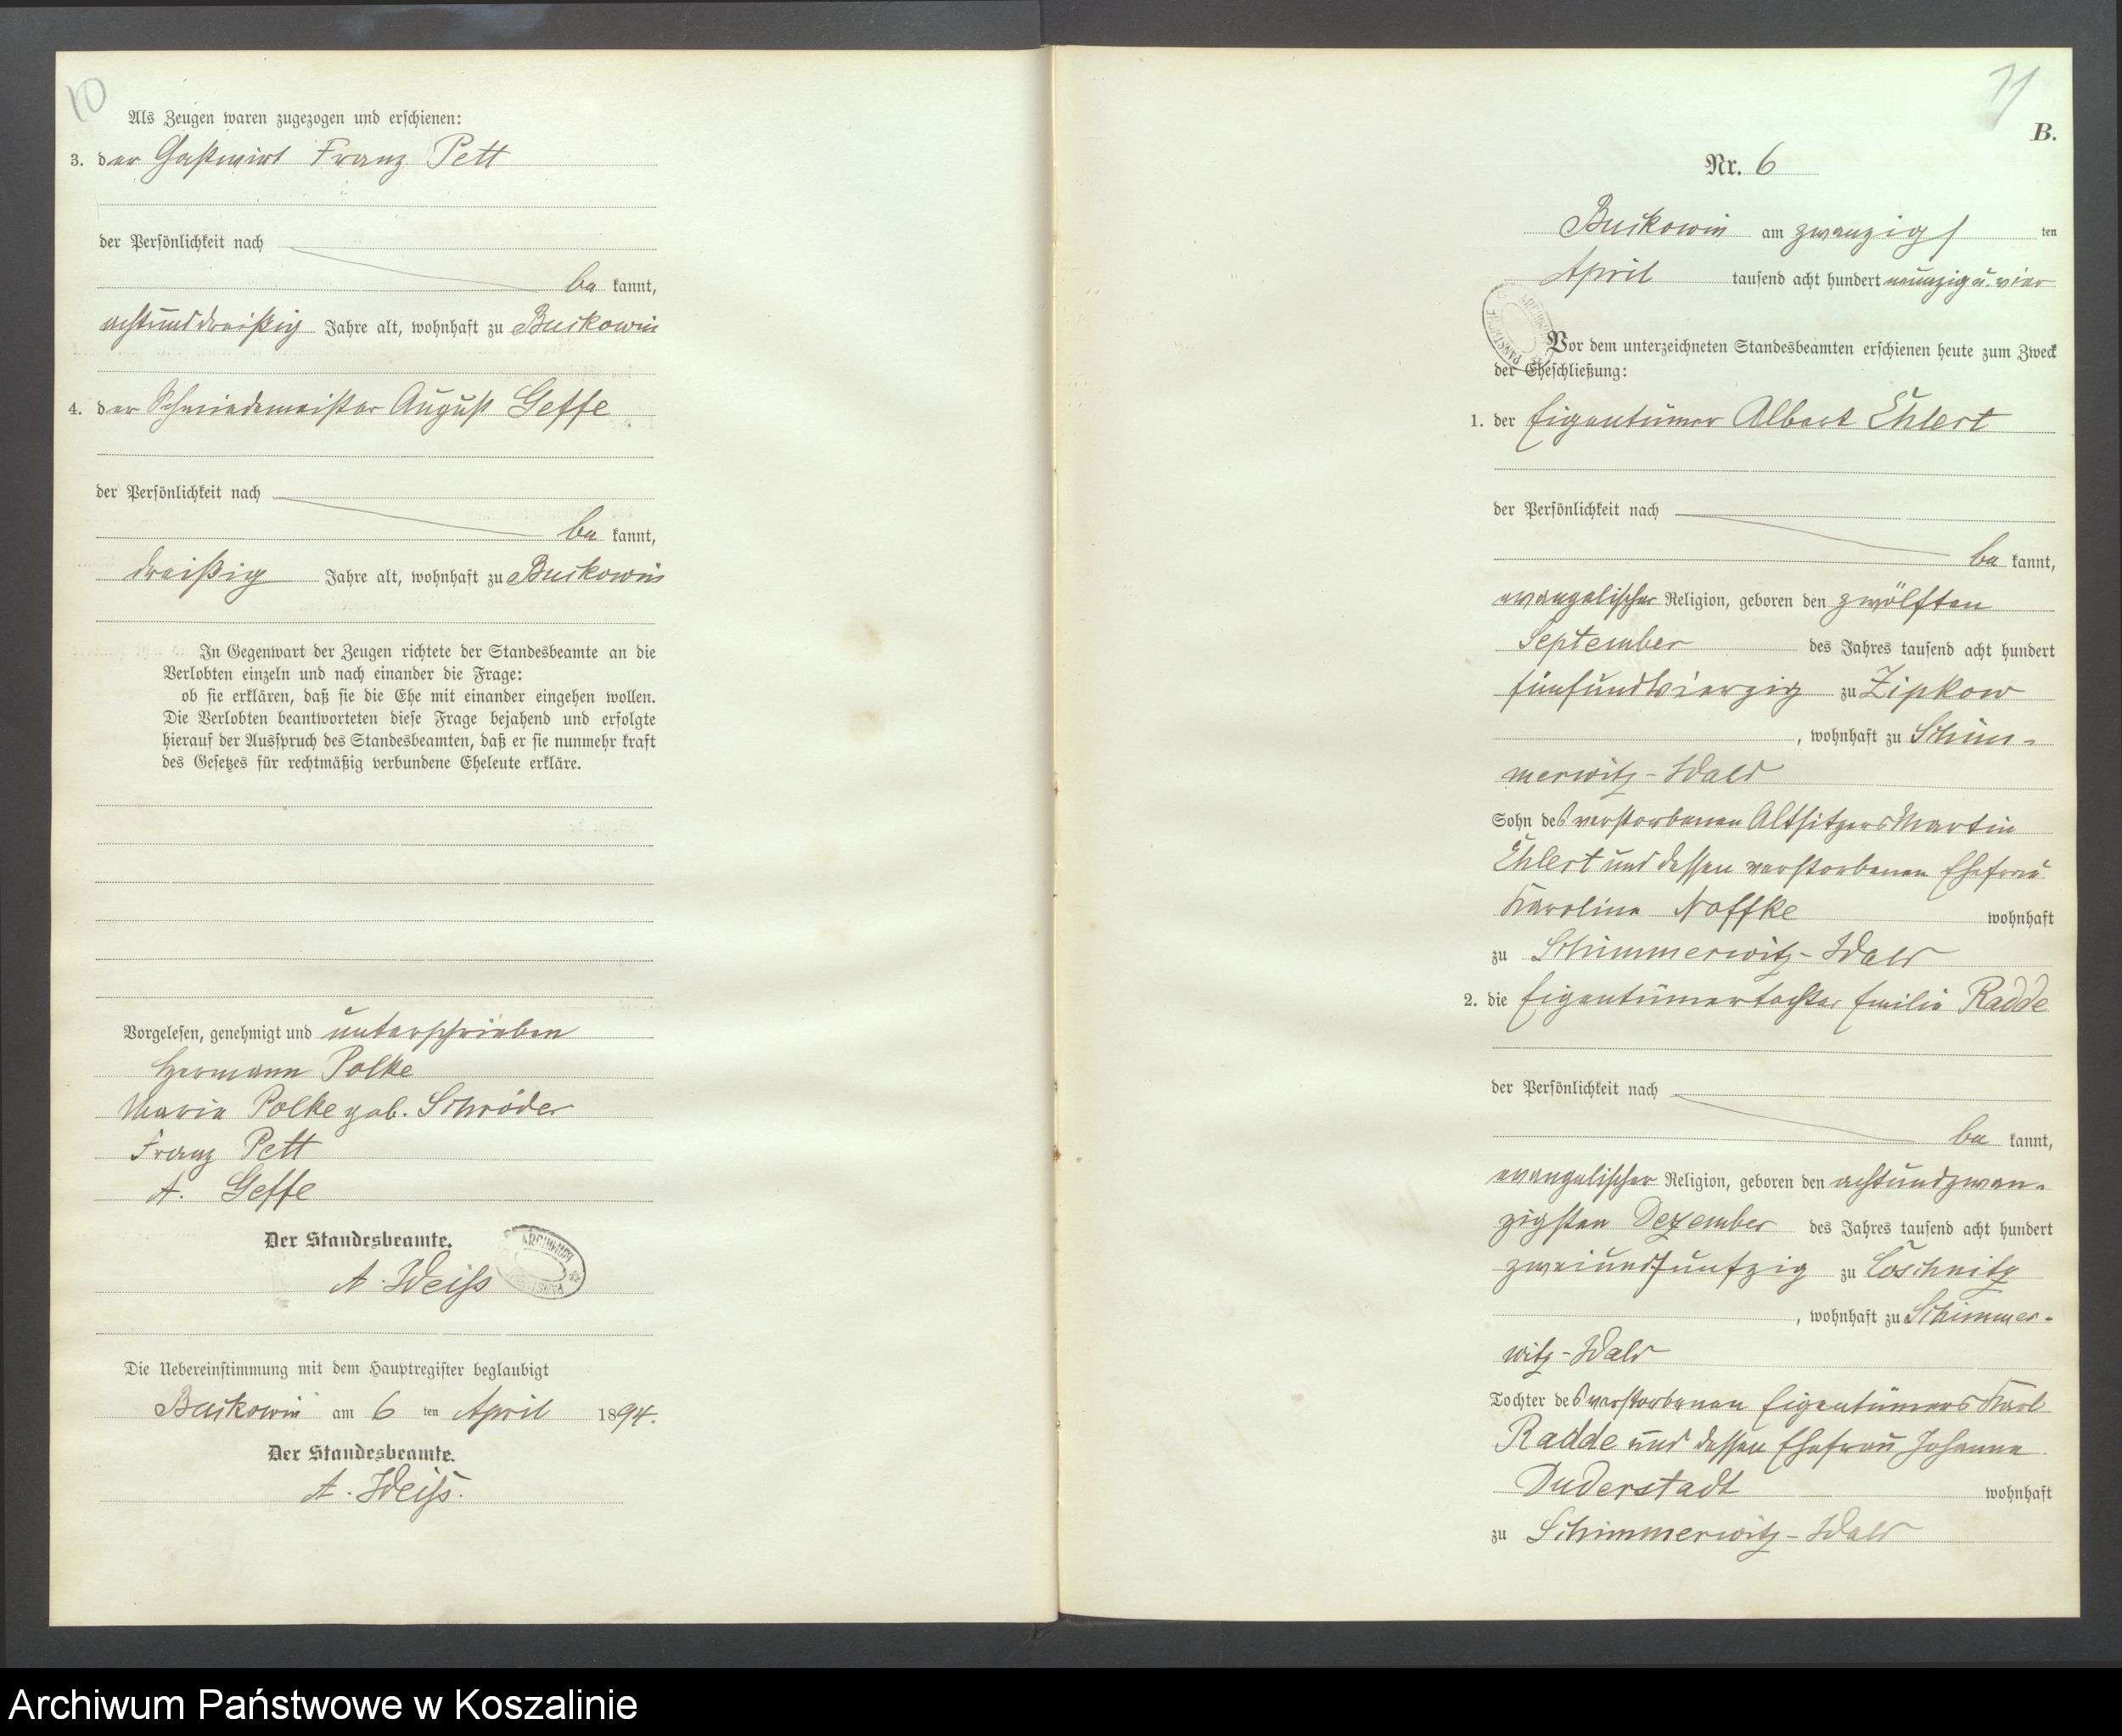 10
Als Zeugen waren zugezogen und erschienen:
3. der Gastwirt Franz Pett
der Persönlichkeit nach
be kannt,
achtunddreißig Jahre alt, wohnhaft zu Buckowin
4. der Schmiedemeister August Geffe
der Persönlichkeit nach
be kannt,
dreißig Jahre alt, wohnhaft zu Buckowin
In Gegenwart der Zeugen richtete der Standesbeamte an die
Verlobten einzeln und nach einander die Frage:
ob sie erklären, daß sie die Ehe mit einander eingehen wollen.
Die Verlobten beantworteten diese Frage bejahend und erfolgte
hierauf der Ausspruch des Standesbeamten, daß er sie nunmehr kraft
des Gesetzes für rechtmäßig verbundene Eheleute erkläre.
Vorgelesen, genehmigt und unterschrieben
Hermann Polke
Marie Polke geb. Schröder
Franz Pett
A. Geffe
Der Standesbeamte.
A. Weiß
ARCHIWUM
Die Uebereinstimmung mit dem Hauptregister beglaubigt
Buckowin am 6 ten April 1894.
Der Standesbeamte.
A. Weiß.
11
B.
Nr. 6
Buckowin am zwanzigs ten
April tausend acht hundert neunzig u. vier
Vor dem unterzeichneten Standesbeamten erschienen heute zum Zweck
der Eheschließung:
1. der Eigentümer Albert Ehlert
der Persönlichkeit nach
be kannt,
evangelischer Religion, geboren den zwölften
September des Jahres tausend acht hundert
fünfundvierzig zu Zipkow
, wohnhaft zu Schim-
merwitz-Wald
Sohn des verstorbenen Altsitzers Martin
Ehlert und dessen verstorbenen Ehefrau
Karoline Noffke wohnhaft
zu Schimmerwitz-Wald
2. die Eigentümertochter Emilie Radde
der Persönlichkeit nach
be kannt,
evangelischer Religion, geboren den achtundzwan-
zigsten Dezember des Jahres tausend acht hundert
zweiundfünfzig zu Coschnitz
, wohnhaft zu Schimmer-
witz-Wald
Tochter des verstorbenen Eigentümers Karl
Radde und dessen Ehefrau Johanne
Duderstadt wohnhaft
zu Schimmerwitz-Wald
Archiwum Państwowe w Koszalinie